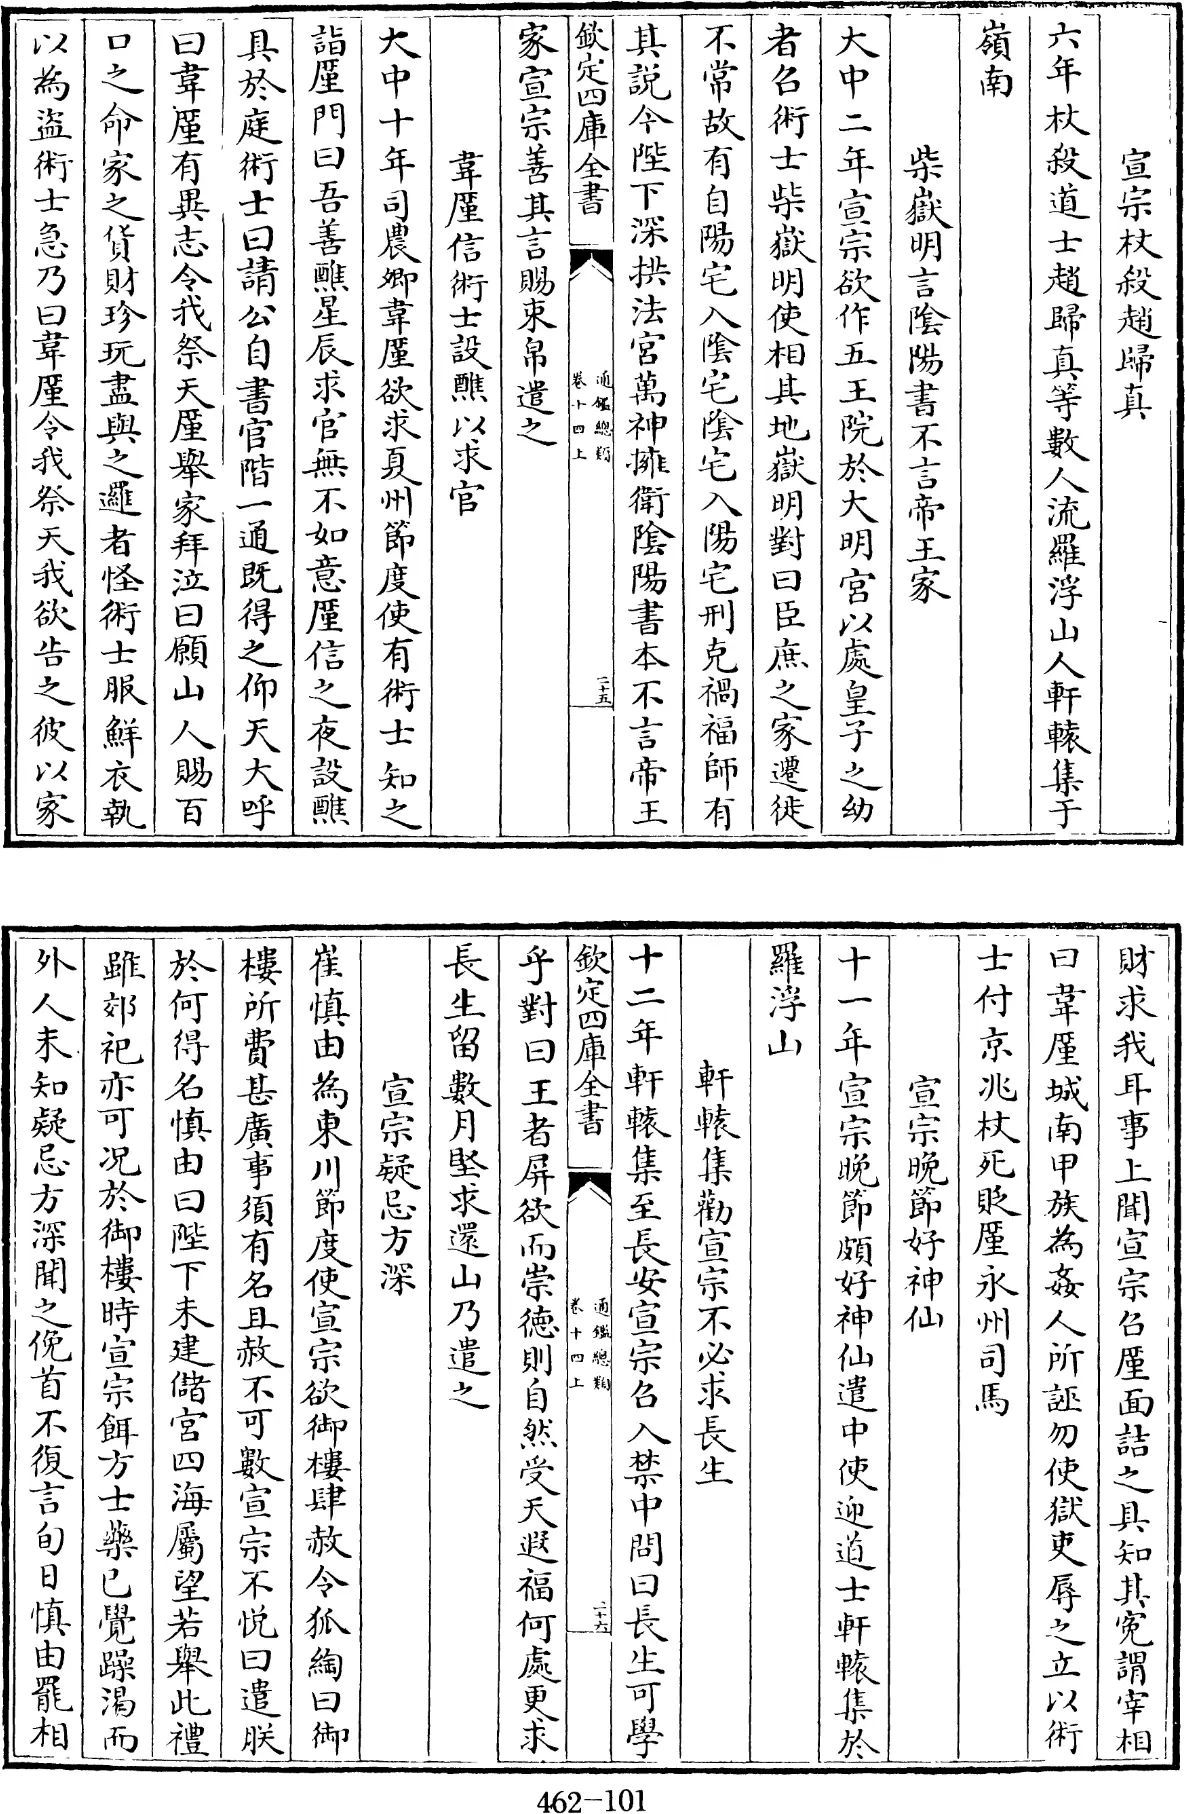 宣宗杖殺趙歸真
六年杖殺道士趙歸真等數人流羅浮山人軒轅集于
嶺南
柴嶽明言陰陽書不言帝王家
大中二年宣宗欲作五王院於大明宮以處皇子之幼
者召術士柴嶽明使相其地嶽明對曰臣庶之家遷徙
不常故有自陽宅入陰宅陰宅入陽宅刑克禍福師有
其説今陛下深拱法宮萬神擁衛陰陽書本不言帝王
欽定四庫全書
通鑑總類
卷十四上
二十五
家宣宗善其言賜束帛遣之
韋廑信術士設醮以求官
大中十年司農卿韋廑欲求夏州節度使有術士知之
詣廑門曰吾善醮星辰求官無不如意廑信之夜設醮
具於庭術士曰請公自書官階一通既得之仰天大呼
曰韋廑有異志令我祭天廑舉家拜泣曰願山人賜百
口之命家之貨財珍玩盡與之邏者怪術士服鮮衣執
以為盜術士急乃曰韋廑令我祭天我欲告之彼以家
財求我耳事上聞宣宗召廑面詰之具知其寃謂宰相
曰韋廑城南甲族為姦人所誣勿使獄吏辱之立以術
士付京兆杖死貶廑永州司馬
宣宗晚節好神仙
十一年宣宗晚節頗好神仙遣中使迎道士軒轅集於
羅浮山
軒轅集勸宣宗不必求長生
十二年軒轅集至長安宣宗召入禁中問曰長生可學
欽定四庫全書
通鑑總類
卷十四上
二十六
乎對曰王者屏欲而崇徳則自然受天遐福何處更求
長生留數月堅求還山乃遣之
宣宗疑忌方深
崔慎由為東川節度使宣宗欲御樓肆赦令狐綯曰御
樓所費甚廣事須有名且赦不可數宣宗不悅曰遣朕
於何得名慎由曰陛下未建儲宮四海屬望若舉此禮
雖郊祀亦可况於御樓時宣宗餌方士藥已覺躁渴而
外人未知疑忌方深聞之俛首不復言旬日慎由罷相
462-101